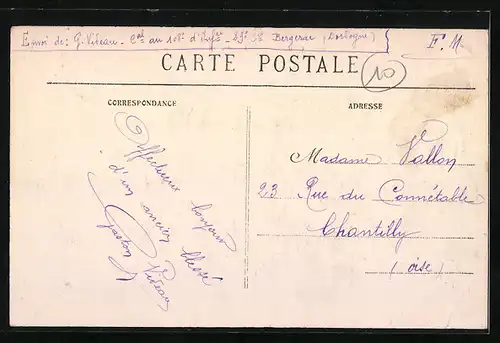 Envoi de: G. Viteau - Cal au 108e d'Infrie - 23e Cie Bergerac (Dordogne)
F. M.
CARTE POSTALE
10
CORRESPONDANCE
Affectueux bonjour
d'un ancien blessé
Gaston Viteau
ADRESSE
Madame Vallon
23 Rue du Connétable
Chantilly
(Oise)